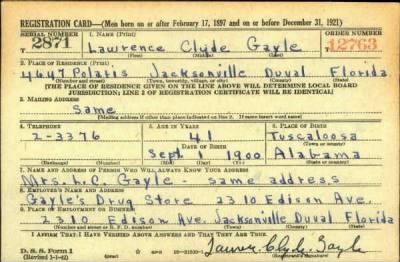 REGISTRATION CARD—(Men born on or after February 17, 1897 and on or before December 31, 1921)
SERIAL NUMBER 1. NAME (Print) ORDER NUMBER
T 2871 Lawrence Clyde Gayle T 12763
(First) (Middle) (Last)
2. PLACE OF RESIDENCE (Print)
4647 Polaris Jacksonville Duval Florida
(Number and street) (Town, township, village, or city) (County) (State)
[THE PLACE OF RESIDENCE GIVEN ON THE LINE ABOVE WILL DETERMINE LOCAL BOARD
JURISDICTION; LINE 2 OF REGISTRATION CERTIFICATE WILL BE IDENTICAL]
3. MAILING ADDRESS
Same
[Mailing address if other than place indicated on line 2. If same insert word same]
4. TELEPHONE 5. AGE IN YEARS 6. PLACE OF BIRTH
2-3376 41 Tuscaloosa
DATE OF BIRTH
Sept 1 1900 Alabama
7. NAME AND ADDRESS OF PERSON WHO WILL ALWAYS KNOW YOUR ADDRESS
Mrs. L.C. Gayle - same address
8. EMPLOYER'S NAME AND ADDRESS
Gayle's Drug Store 2310 Edison Ave.
9. PLACE OF EMPLOYMENT OR BUSINESS
2310 Edison Ave. Jacksonville Duval Florida
(Number and street or R. F. D. number) (Town) (County) (State)
I AFFIRM THAT I HAVE VERIFIED ABOVE ANSWERS AND THAT THEY ARE TRUE.
D. S. S. Form 1
(Revised 1-1-42) (over) Lawrence Clyde Gayle
(Registrant's signature)